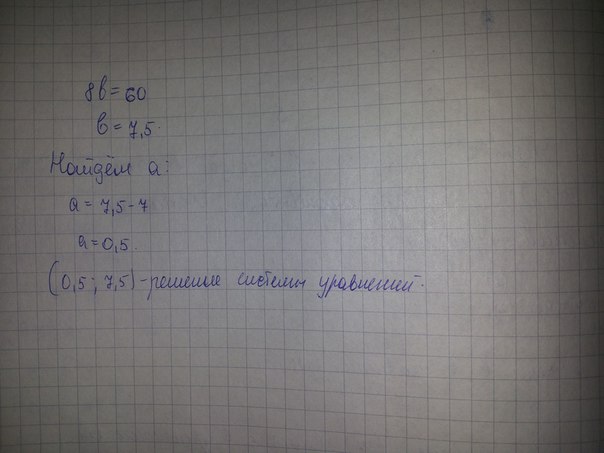 8в=60
в=7,5.
Найдём а:
а=7,5-7
а=0,5.
(0,5; 7,5)-решение системы уравнений.